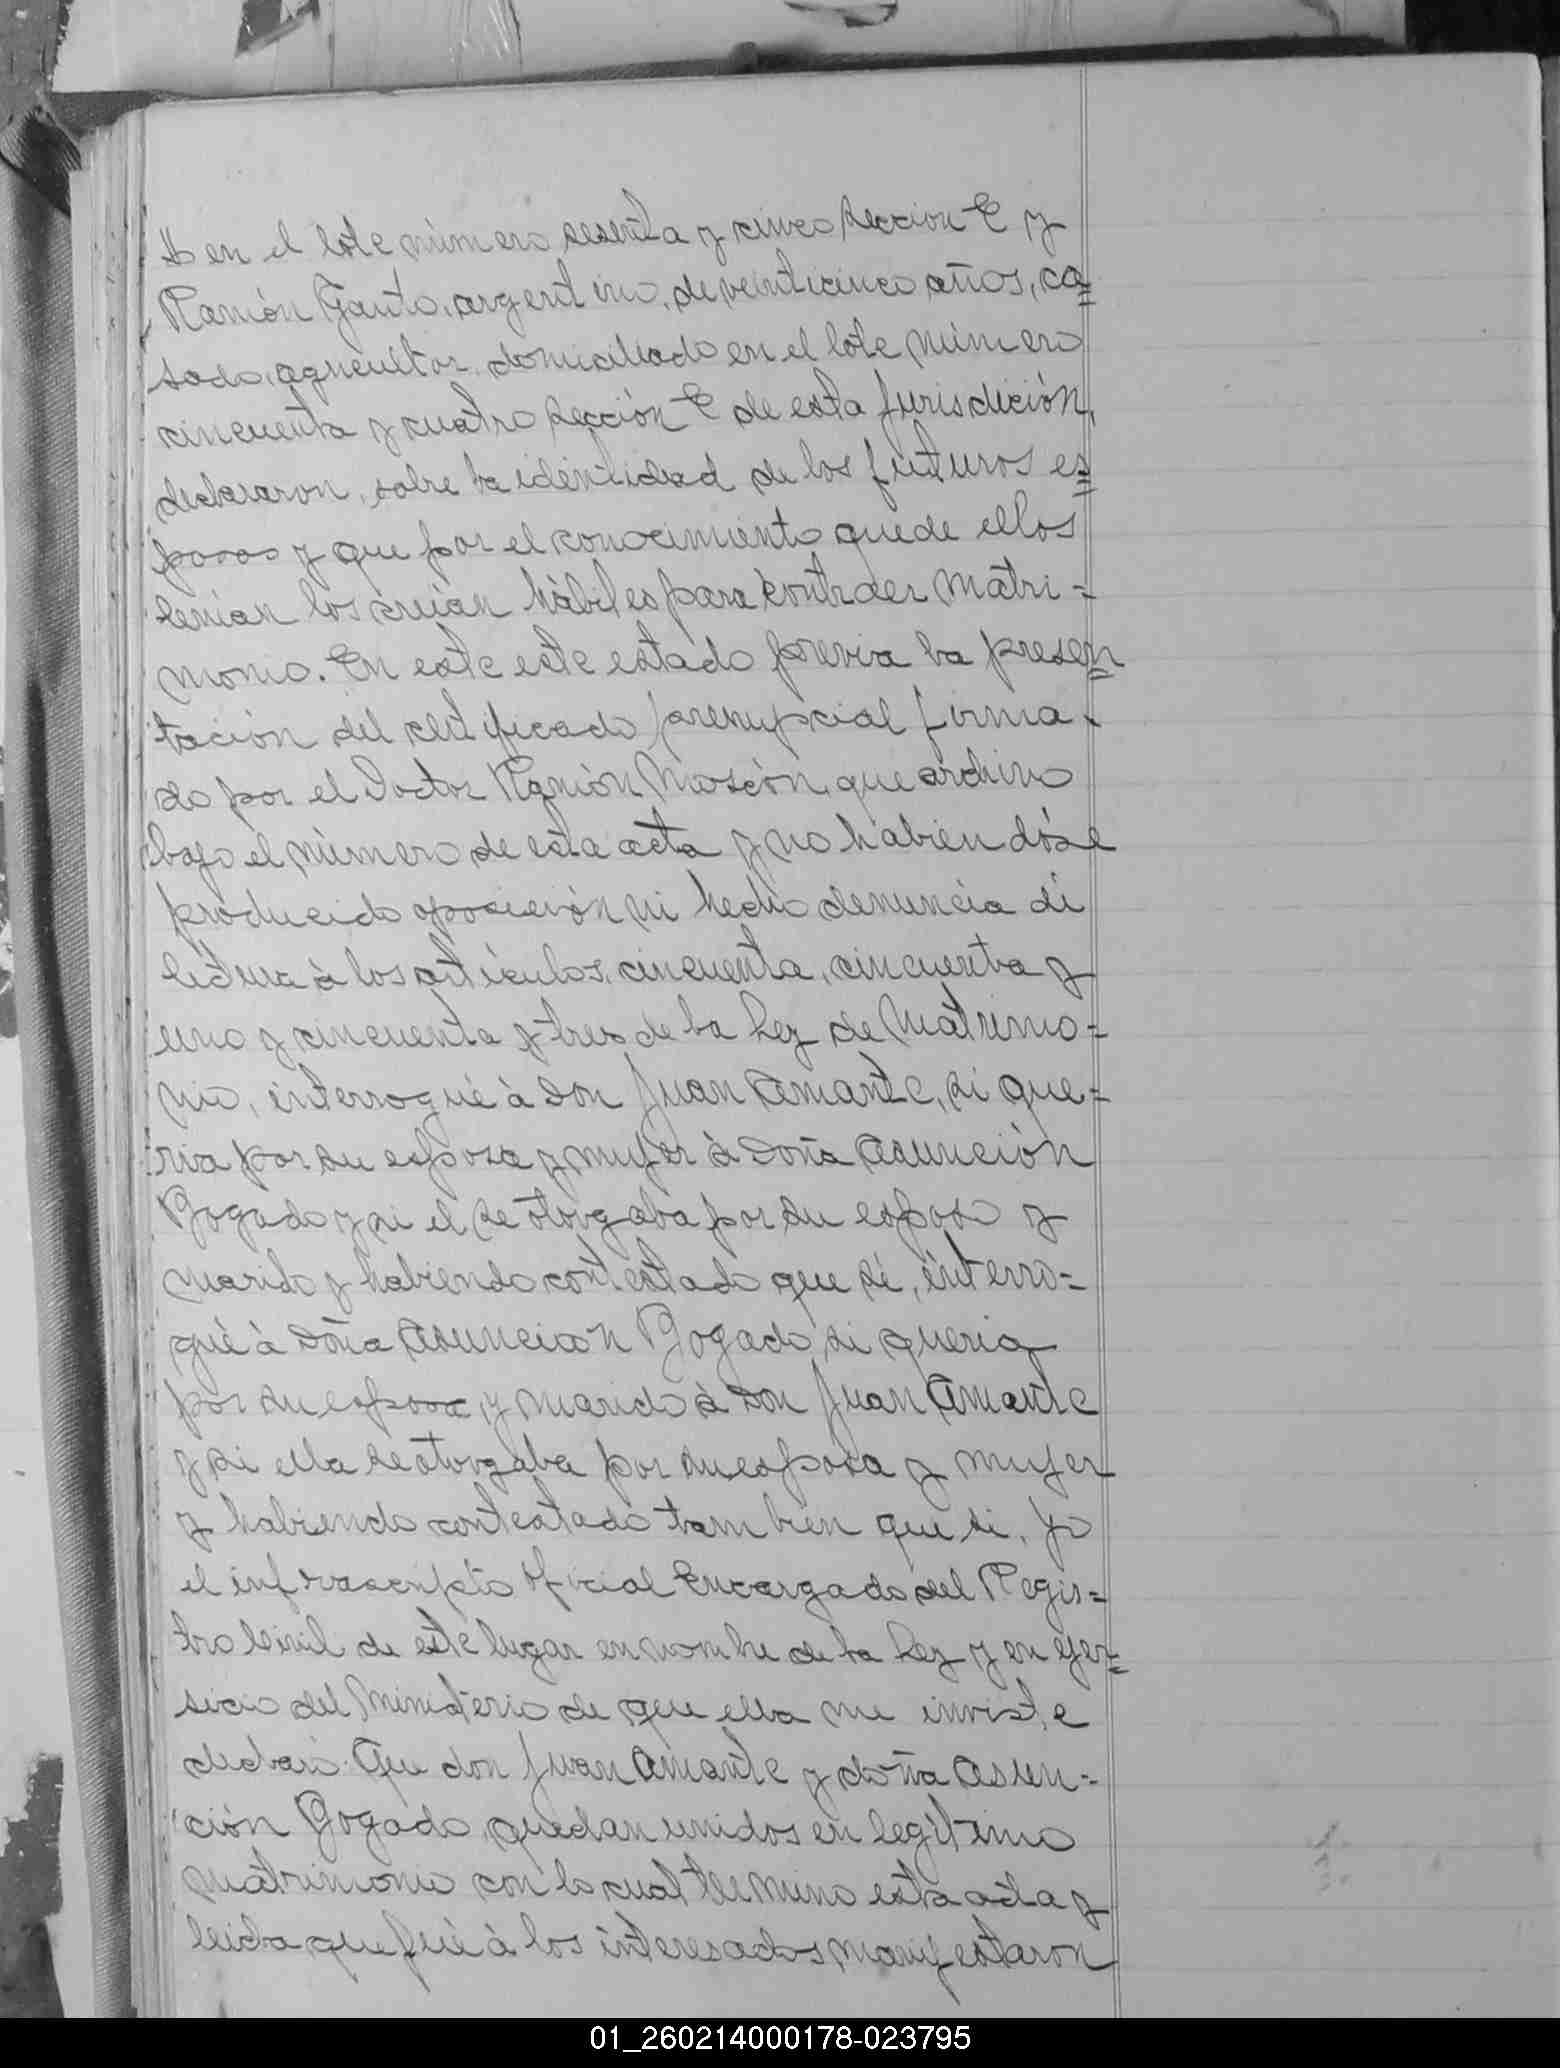 en el lote número sesenta y cinco Sección C y
Ramón Gauto, argentino, de veinticinco años, ca=
sado, agricultor, domiciliado en el lote número
cincuenta y cuatro Sección C de esta jurisdición,
declararon, sobre la identidad de los futuros es=
posos y que por el conocimiento que de ellos
tenian los creian hábiles para contraer Matri=
monio. En este este estado previa la presen=
tación del certificado prenupcial firma-
do por el Doctor Ramón que archivo
bajo el número de esta acta y no habiendóse
producido oposición ni hecho denuncia dí
lectura à los artículos, cincuenta, cincuenta y
uno y cincuenta y tres de la Ley de Matrimo=
nio, interrogué à Don Juan Amante, si que=
ria por su esposa y mujer à Doña Asunción
Bogado y si el se otorgaba por su esposo y
marido y habiendo contestado que sí, interro=
gué à Doña Asunción Bogado si queria
por su esposo, y marido à Don Juan Amante
y si ella se otorgaba por su esposa y mujer
y habiendo contestado tambien que si, yo
el infrascripto Oficial Encargado del Regis=
tro Civil de este lugar en nombre de la Ley y en ejer=
sicio del Ministerio de que ella me inviste
declaró: Que don Juan Amante y doña Asun=
ción Bogado, quedan unidos en legítimo
matrimonio con lo cual termino esta acta y
leida que fué à los interesados manifestaron
01_260214000178-023795